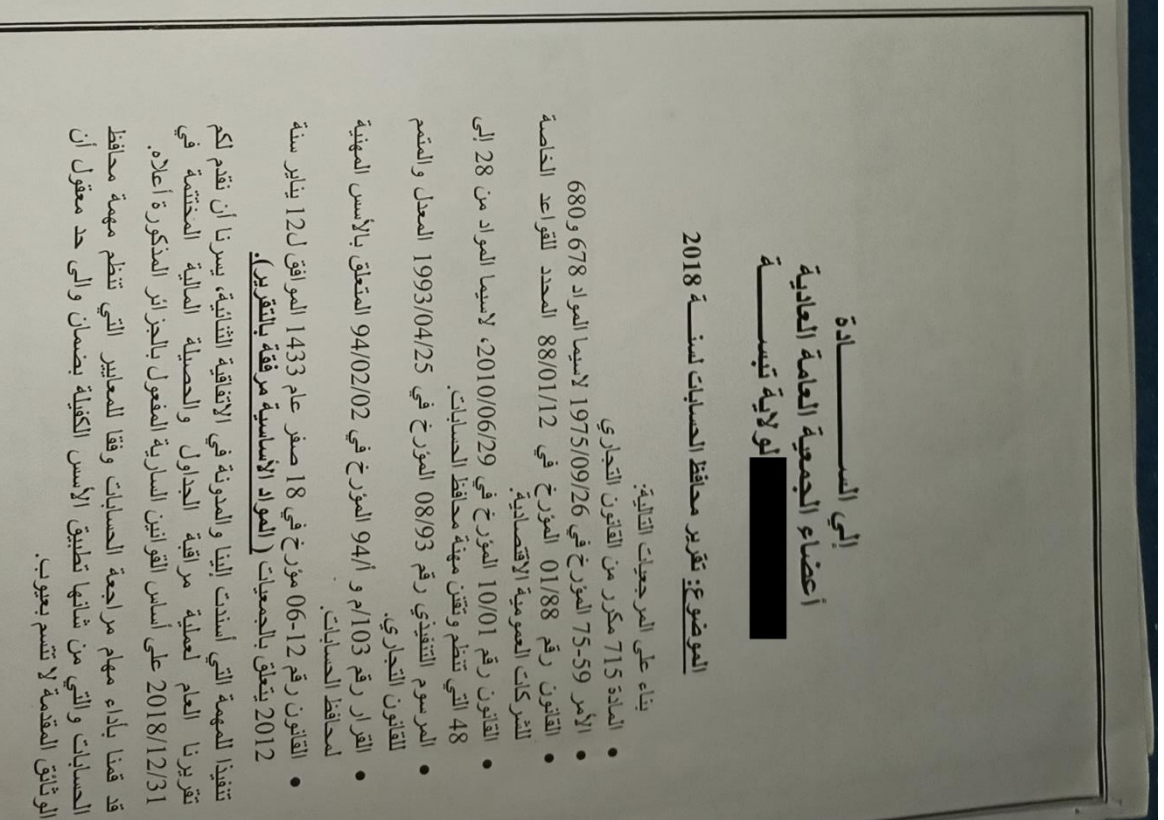 إلي الســـــــــادة
أعضاء الجمعية العامة العادية
لولاية تبســـــــة
الموضوع: تقرير محافظ الحسابات لسنـــة 2018
بناء على المرجعيات التالية:
• المادة 715 مكرر من القانون التجاري
• الأمر 59-75 المؤرخ في 1975/09/26 لاسيما المواد 678 و680
• القانون رقم 01/88 المؤرخ في 88/01/12 المحدد للقواعد الخاصة
للشركات العمومية الاقتصادية.
• القانون رقم 10/01 المؤرخ في 2010/06/29، لاسيما المواد من 28 إلى
48 التي تنظم وتقنن مهنة محافظ الحسابات.
• المرسوم التنفيذي رقم 08/93 المؤرخ في 1993/04/25 المعدل والمتمم
للقانون التجاري.
• القرار رقم 103/م و أ/94 المؤرخ في 94/02/02 المتعلق بالأسس المهنية
لمحافظ الحسابات.
• القانون رقم 12-06 مؤرخ في 18 صفر عام 1433 الموافق ل12 يناير سنة
2012 يتعلق بالجمعيات ( المواد الأساسية مرفقة بالتقرير).
تنفيذا للمهمة التي أسندت إلينا والمدونة في الاتفاقية الثنائية، يسرنا أن نقدم لكم
تقريرنا العام لعملية مراقبة الجداول والحصيلة المالية المختتمة في
2018/12/31 على أساس القوانين السارية المفعول بالجزائر المذكورة أعلاه.
قد قمنا بأداء مهام مراجعة الحسابات وفقا للمعايير التي تنظم مهمة محافظ
الحسابات والتي من شانها تطبيق الأسس الكفيلة بضمان والى حد معقول أن
الوثائق المقدمة لا تتسم بعيوب.